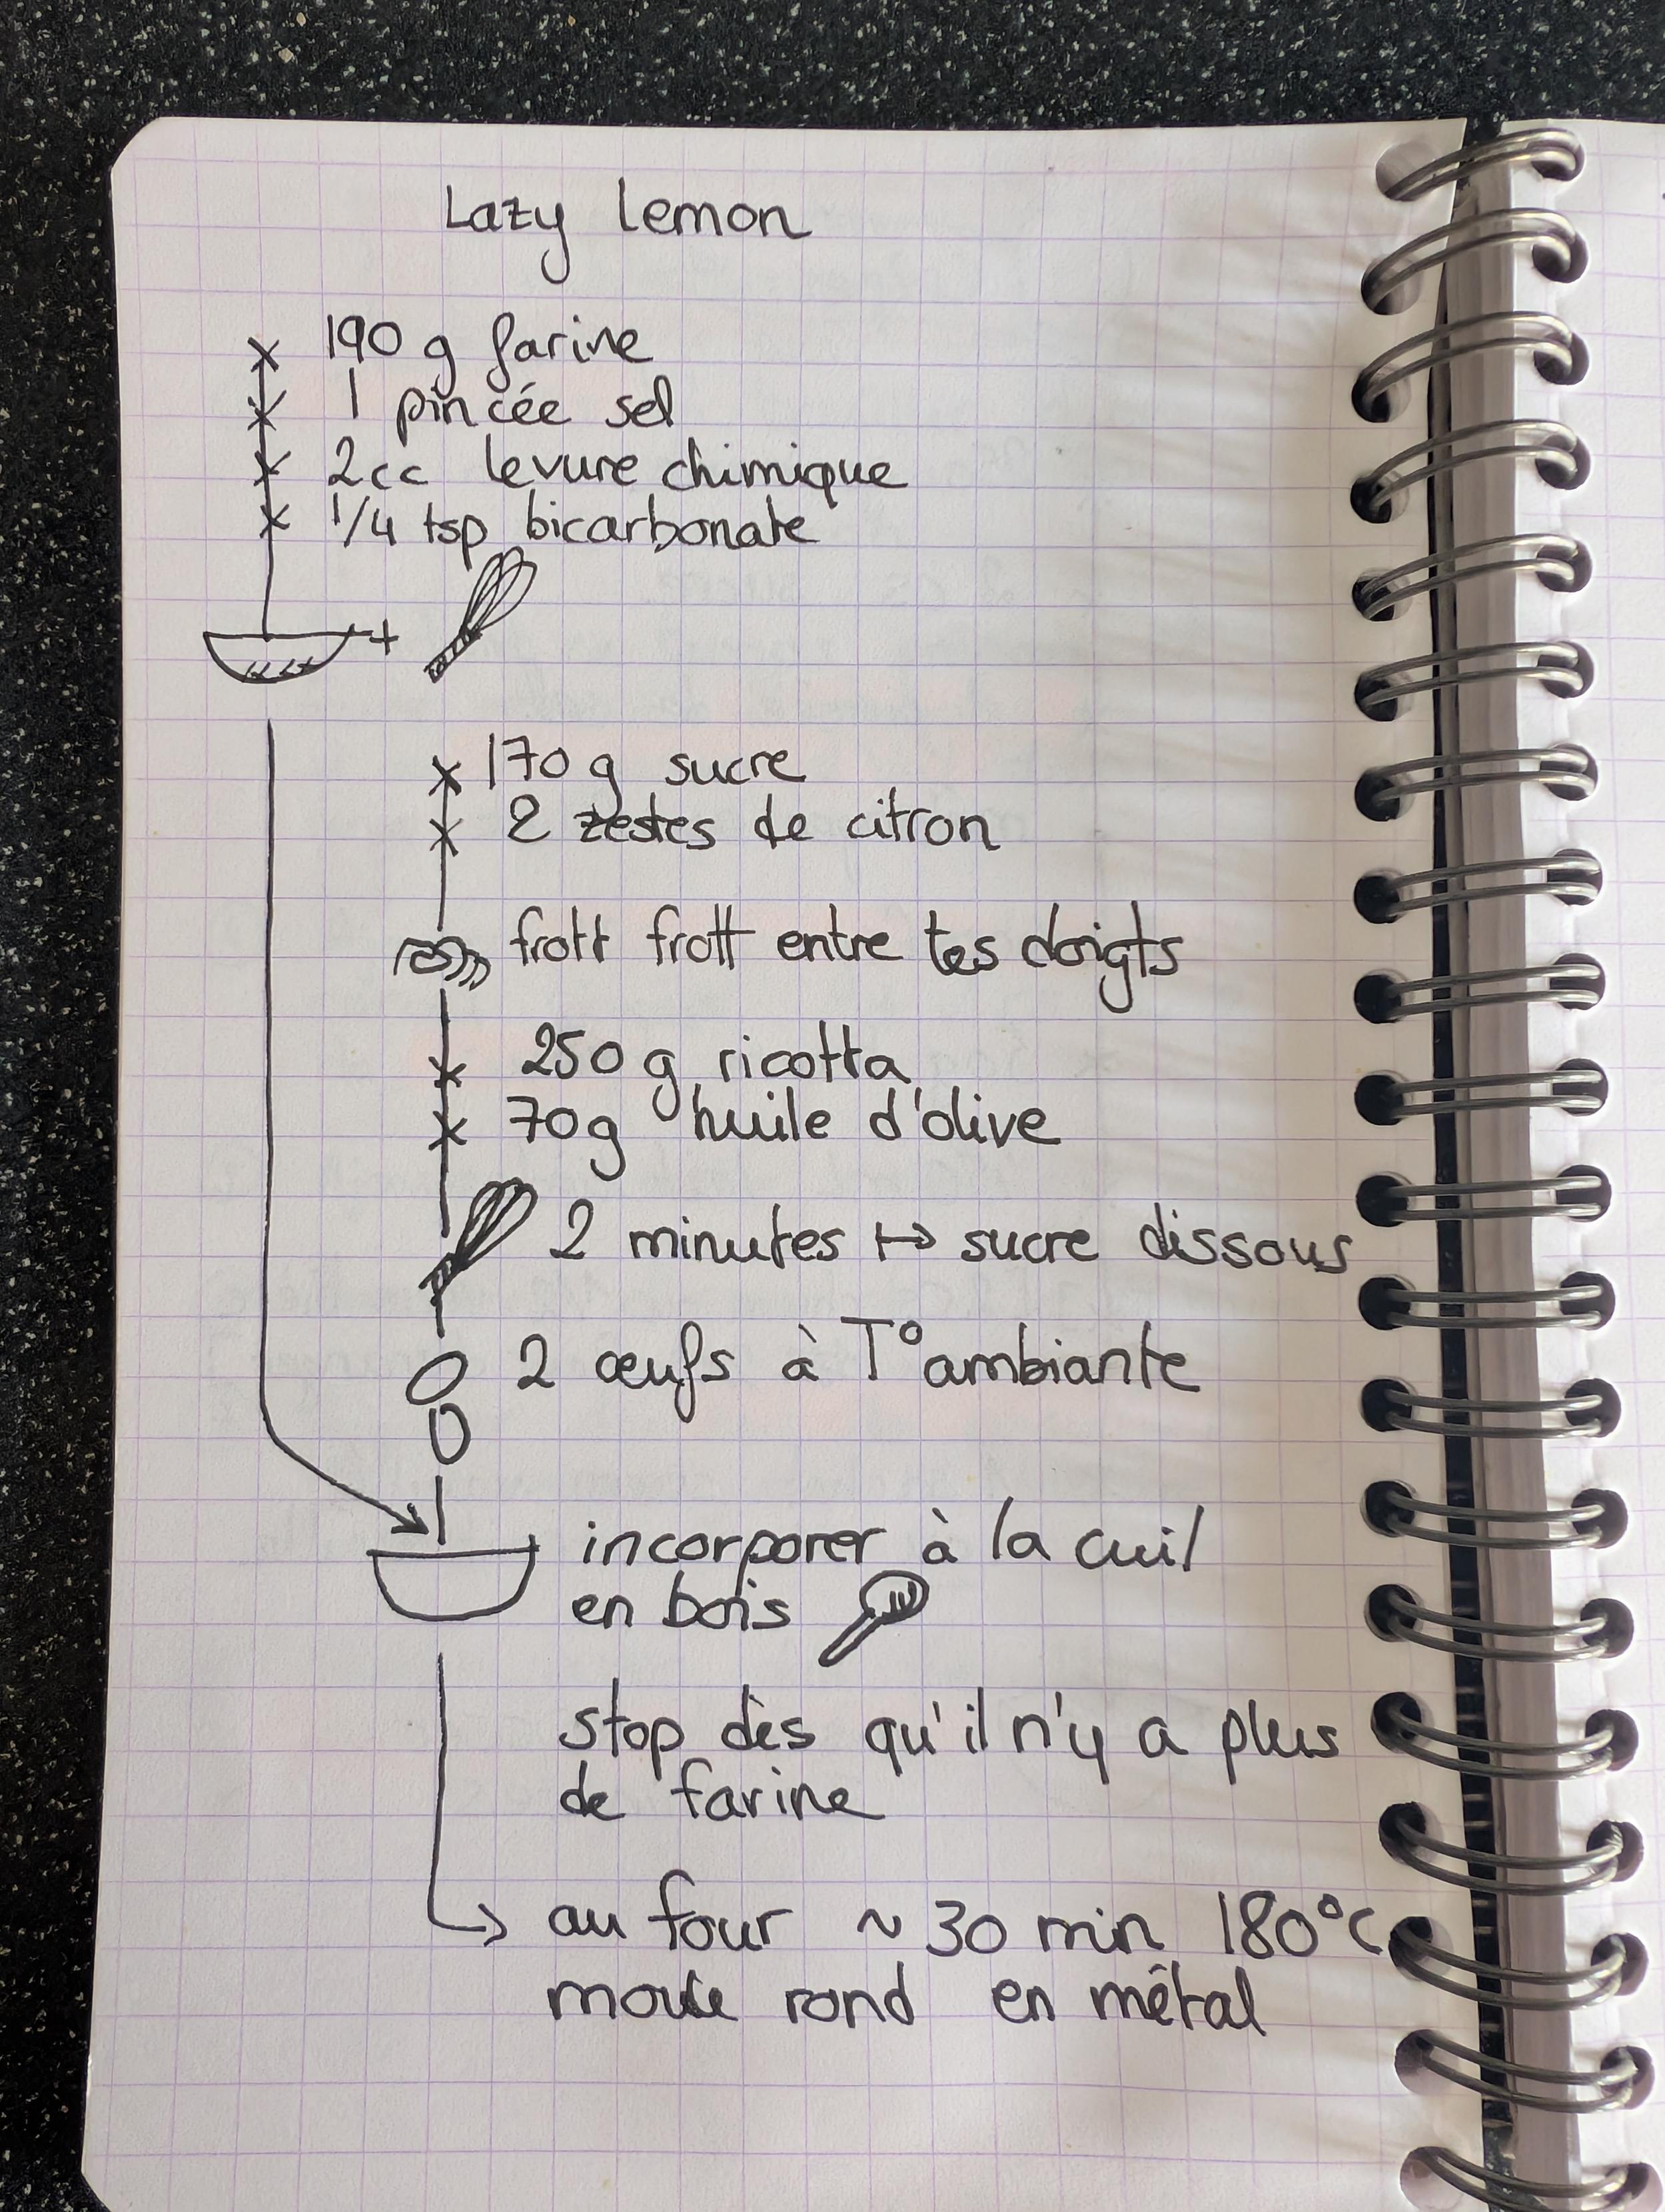 Lazy lemon
190 g farine
1 pincée sel
2cc levure chimique
1/4 tsp bicarbonate
170 g sucre
2 zestes de citron
frott frott entre tes doigts
250 g ricotta
70g huile d'olive
2 minutes ↦ sucre dissous
2 œufs à T° ambiante
incorporer à la cuil
en bois
stop dès qu'il n'y a plus
de farine
au four ~ 30 min 180°C
moule rond en métal